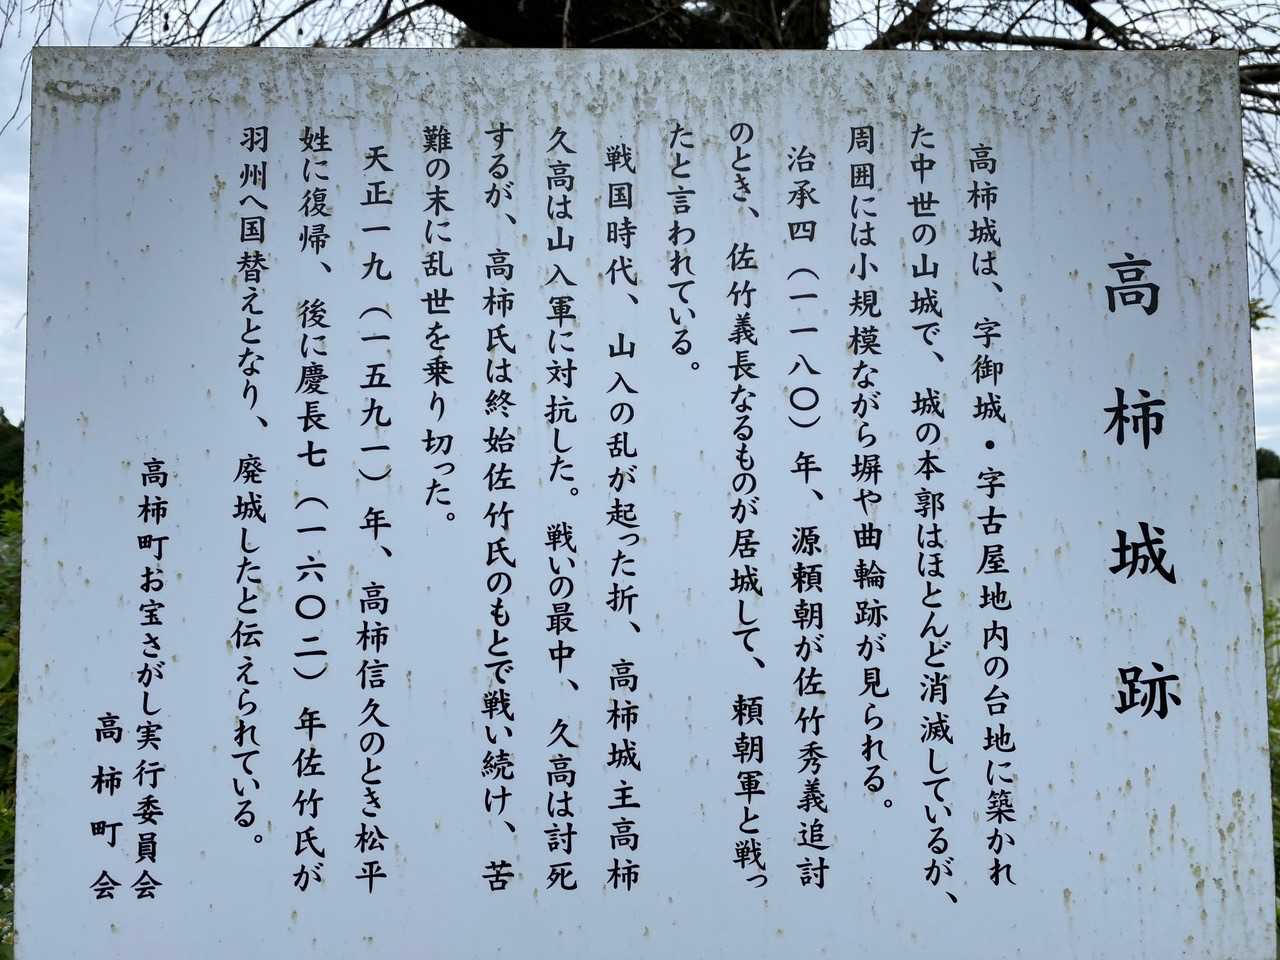 高柿城跡
高柿城は、字御城・字古屋地内の台地に築かれ
た中世の山城で、城の本郭はほとんど消滅しているが、
周囲には小規模ながら塀や曲輪跡が見られる。
治承四（一一八〇）年、源頼朝が佐竹秀義追討
のとき、佐竹義長なるものが居城して、頼朝軍と戦っ
たと言われている。
戦国時代、山入の乱が起った折、高柿城主高柿
久高は山入軍に対抗した。戦いの最中、久高は討死
するが、高柿氏は終始佐竹氏のもとで戦い続け、苦
難の末に乱世を乗り切った。
天正一九（一五九一）年、高柿信久のとき松平
姓に復帰、後に慶長七（一六〇二）年佐竹氏が
羽州へ国替えとなり、廃城したと伝えられている。
高柿町お宝さがし実行委員会
高柿町会